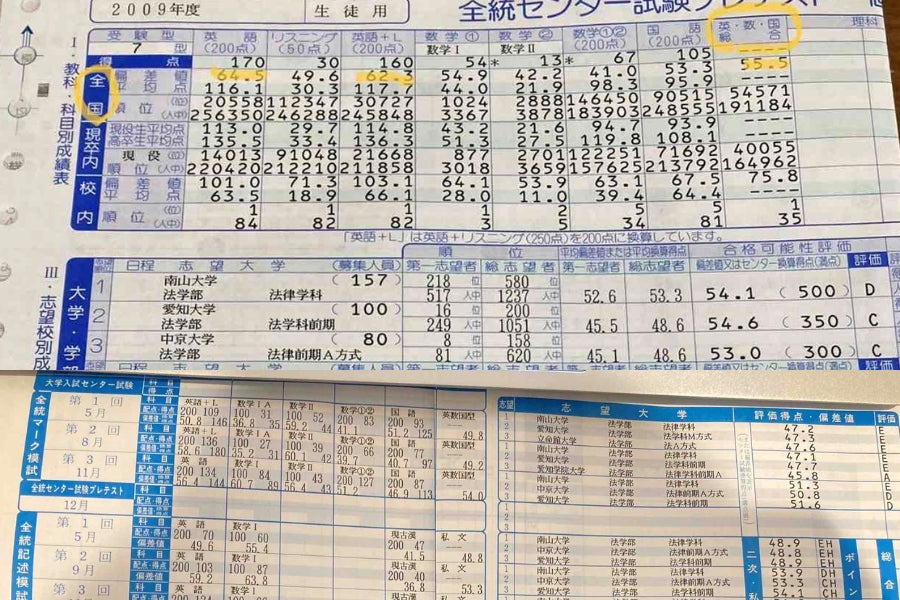 2009年度 生徒用 全統センター試験プレテスト
I 教科・科目別成績表
受験型 英語 リスニング 英語+L 数学① 数学② 数学①② 国語 英・数・国 理科
7型 (200点) (50点) (200点) 数学I 数学II (200点) (200点) 総合
得点 170 30 160 54 * 13 * 67 105 ----
全国
偏差値 64.5 49.6 62.3 54.9 42.2 41.0 53.3 55.5
平均点 116.1 30.3 117.7 44.0 21.9 98.3 95.9 ----
順位 (位) 20558 112347 30727 1024 2888 146450 90515 54571
(人中) 256350 246288 245848 3367 3878 183903 248555 191184
現卒内
現役生平均点 113.0 29.7 114.8 43.2 21.6 94.7 93.9 ----
高卒生平均点 135.5 33.4 136.3 51.3 27.5 119.8 108.1 ----
現役 (位) 14013 91048 21668 877 2701 122251 71692 40055
順位 (人中) 220420 212210 211858 3018 3659 157625 213792 164962
校内
偏差値 101.0 71.3 103.1 64.1 53.9 63.1 67.5 75.8
平均点 63.5 18.9 66.1 28.0 11.0 39.4 64.4 ----
順位 (位) 1 1 1 1 2 5 5 1
(人中) 84 82 82 3 5 34 81 35
「英語+L」は英語+リスニング(250点)を200点に換算しています。
III・志望校別成
大学・学部
日程 志望大学 (募集人員) 順位 平均偏差値または平均換算得点 合格可能性評価
第一志望者 総志望者 第一志望者 総志望者 偏差値又はセンター換算得点(満点) 評価
1 南山大学 (157) 218位 580位
法学部 法律学科 517人中 1237人中 52.6 53.3 54.1 (500) D
2 愛知大学 (100) 16位 200位
法学部 法学科前期 249人中 1051人中 45.5 48.6 54.6 (350) C
3 中京大学 (80) 8位 158位
法学部 法律前期A方式 81人中 620人中 45.1 48.6 53.0 (300) C
大学入試センター試験 科目 得点
全統マーク模試
第1回 5月 科目 英語+L 数学IA 数学II 数学①② 国語 英数国型
配点・得点 200 109 100 31 100 52 200 83 200 93 ----
偏差値 50.8 146 36.8 35 59.2 44 41.1 51.2 125 49.8
第2回 8月 科目 英語+L 数学IA 数学II 数学①② 国語 英数国型
配点・得点 200 136 100 27 100 39 200 66 200 77 ----
偏差値 58.6 180 35.2 31 60.1 42 39.7 40.7 97 49.2
第3回 11月 科目 英語+L 数学I 数学II 数学①② 国語 英数国型
配点・得点 200 134 100 84 100 43 200 127 200 ----
偏差値 56.4 144 60.7 89 56.4 43 51.2 46.9 113 54.0
全統センター試験プレテスト 12月 科目 配点・得点 偏差値
全統記述模試
第1回 5月 科目 英語 数学I 現古漢 私文
配点・得点 200 70 100 60 200 47 ----
偏差値 49.6 55.4 41.5 48.8
第2回 9月 科目 英語 数学I 現古漢 私文
配点・得点 200 103 100 87 200 40 ----
偏差値 59.2 63.8 36.8 53.3
第3回 科目 英語 数学I 現古漢 私文
志望 志望大学 評価得点・偏差値 評価
1 南山大学 法学部 法律学科 47.2 E
2 愛知大学 法学部 法学科M方式 47.3 E
3 立命館大学 法学部 法A方式 47.6
1 南山大学 法学部 法律学科 47.1 E
2 愛知大学 法学部 法学科前期 47.7 E
3 愛知学院大学 法学部 法律学科前期A 45.8 A
1 南山大学 法学部 法律学科 51.3 E
2 中京大学 法学部 法律前期A方式 50.8 D
3 愛知大学 法学部 法学科前期 51.6 D
1 南山大学 法学部 法律学科 48.9 EH
2 中京大学 法学部 法律前期A方式 48.8 EH
3 愛知大学 法学部 法学科前期 48.9 EH
1 南山大学 法学部 法律学科 53.9 DH
2 中京大学 法学部 法律前期A方式 53.3 CH
3 愛知大学 法学部 法学科前期 54.1 CH
二次・私 ポイン 総合